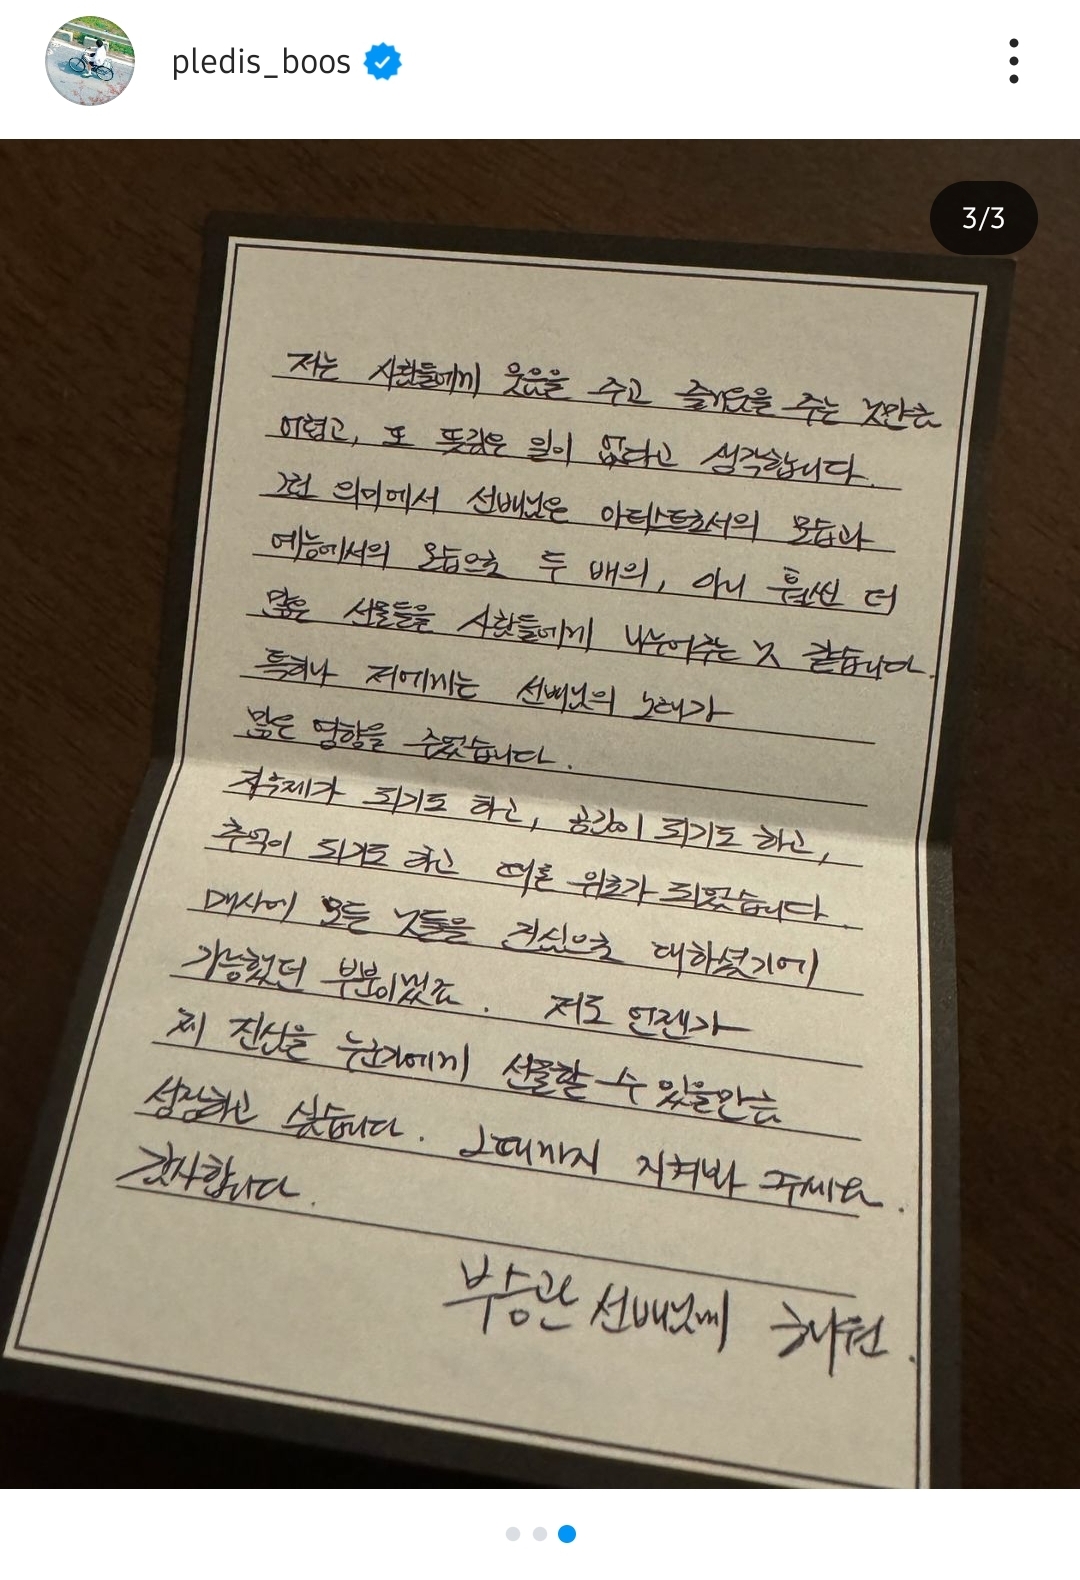 pledis_boos
3/3
저는 사람들에게 웃음을 주고 즐거움을 주는 것만큼
어렵고, 또 뜻깊은 일이 없다고 생각합니다.
그런 의미에서 선배님은 아티스트로서의 모습과
예능에서의 모습으로 두 배의, 아니 훨씬 더
많은 선물들을 사람들에게 나누어주는 것 같습니다.
특히나 저에게는 선배님의 노래가
많은 영향을 주었습니다.
자수제가 되기도 하고, 공감이 되기도 하고,
추억이 되기도 하고 때론 위로가 되었습니다.
매사에 모든 것들을 진심으로 대하셨기에
가능했던 부분이겠죠. 저도 언젠가
제 진심을 누군가에게 선물할 수 있을만큼
성장하고 싶습니다. 그때까지 지켜봐 주세요.
감사합니다.
부승관 선배님께